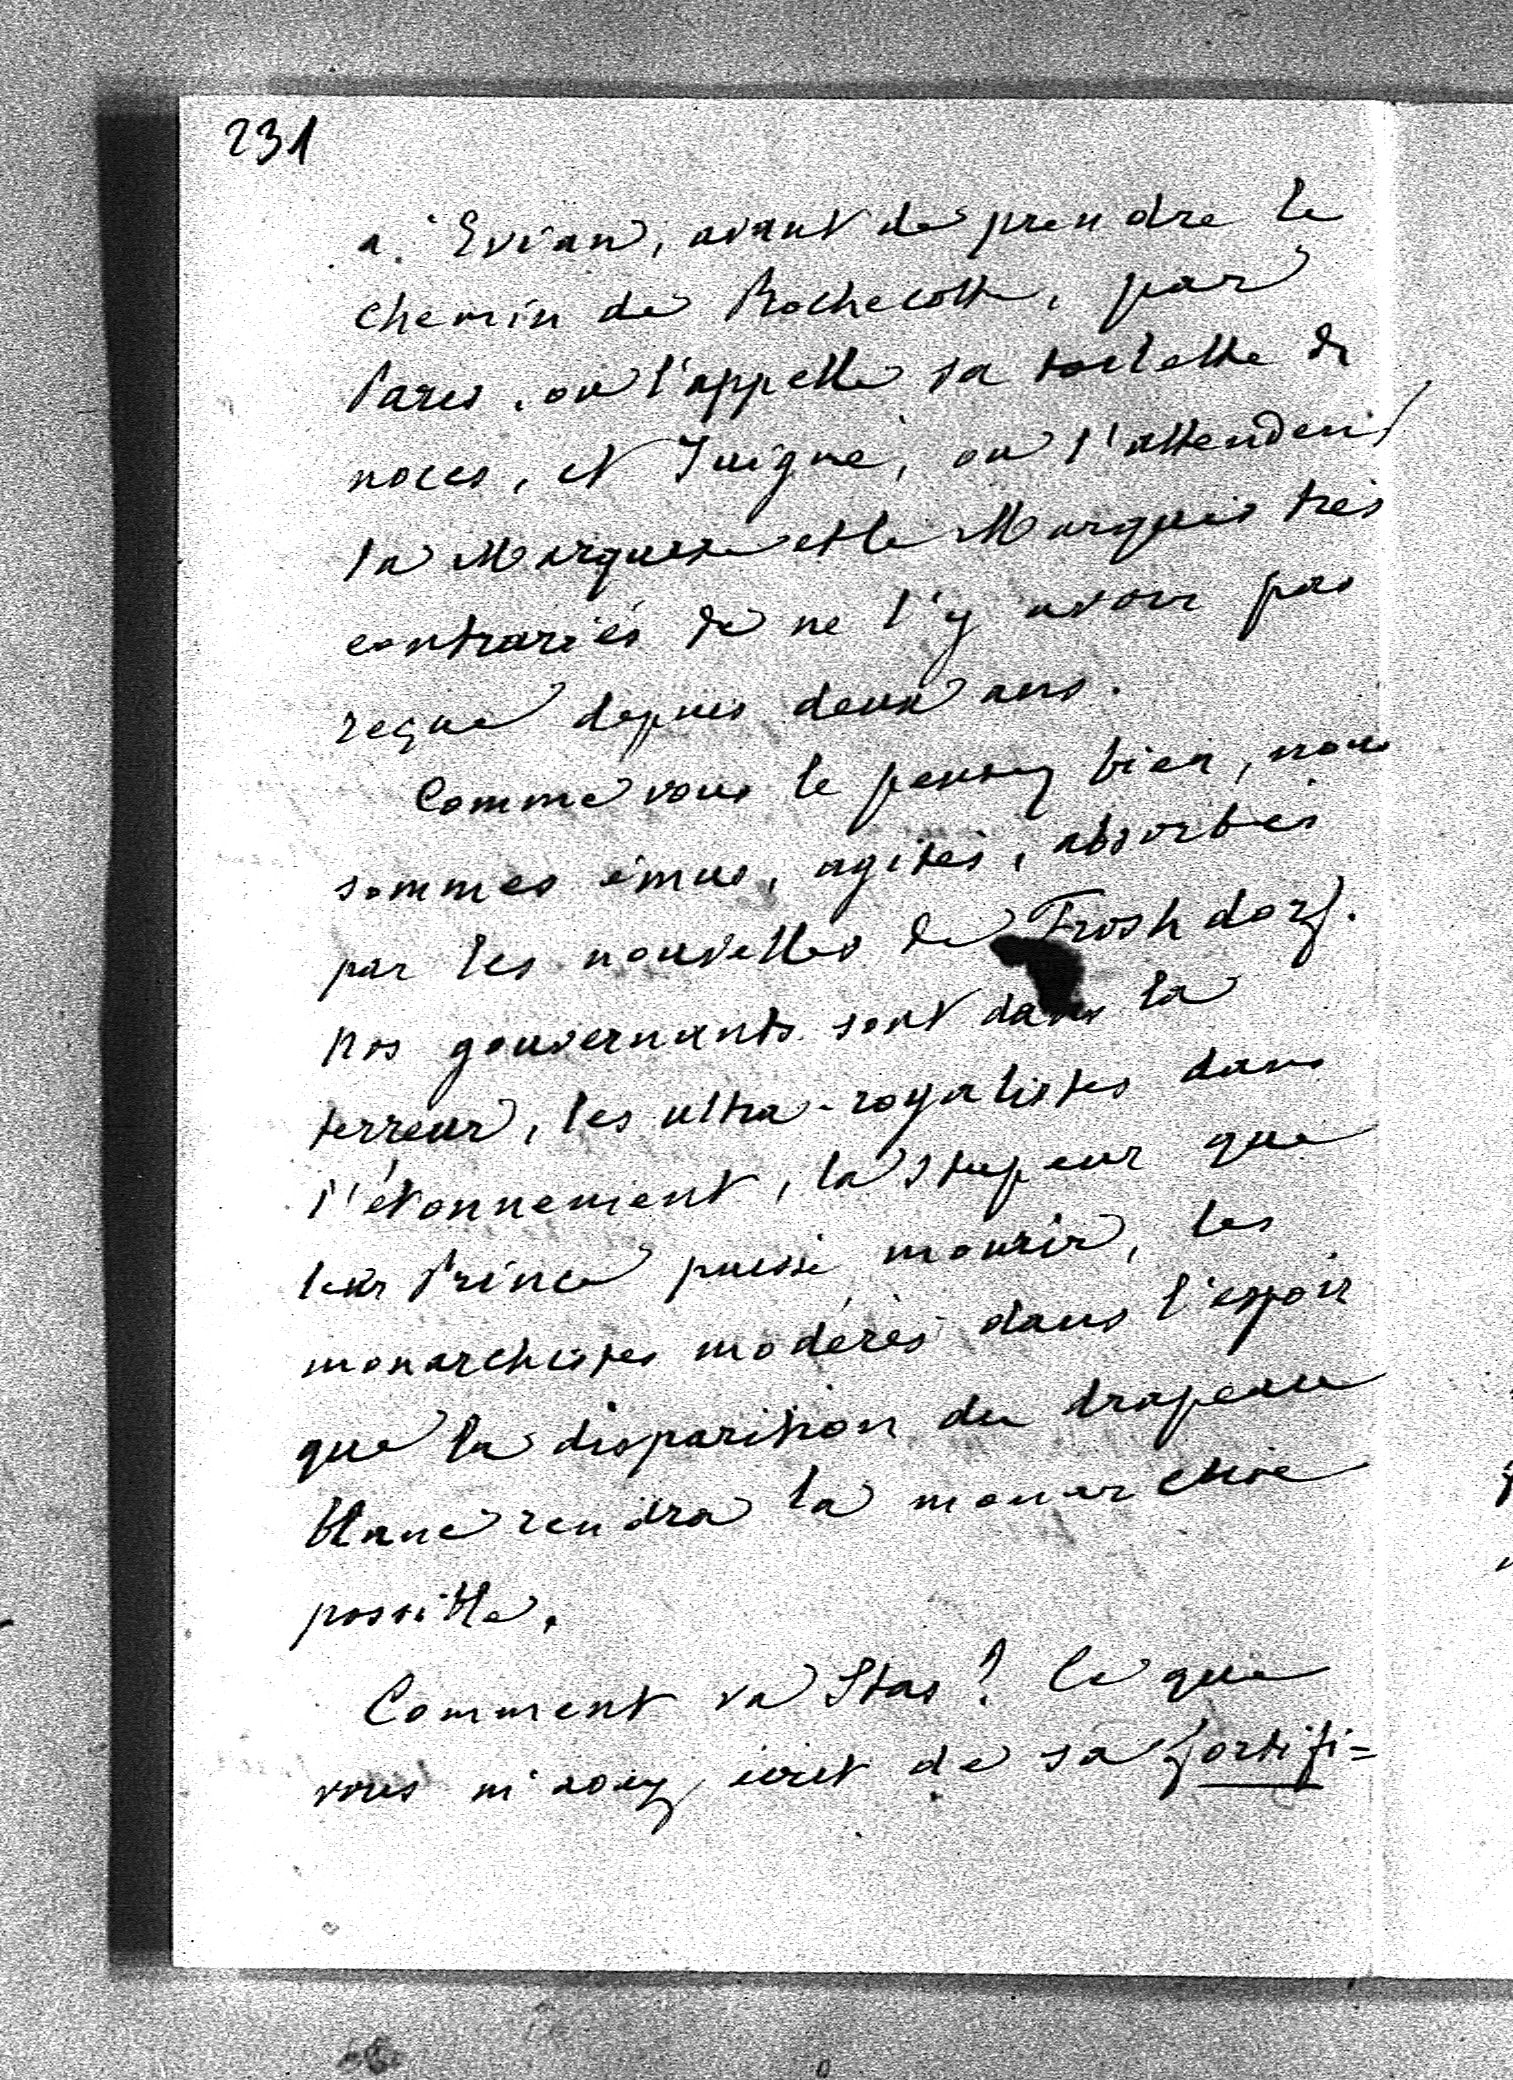 231
à Evian, avant de prendre le
chemin de Rochecotte, par
Paris, où l'appelle sa toilette de
noces, et Juigné, où l'attendent
la Marquise et le Marquis très
contrariés de ne l'y avoir pas
reçue depuis deux ans.
Comme vous le pensez bien, nous
sommes émus, agités, absorbés
par les nouvelles de Froshdorf.
Nos gouvernants sont dans la
terreur, les ultra-royalistes dans
l'étonnement, la stupeur que
leur Prince puisse mourir, les
monarchistes modérés dans l'espoir
que la disparition du drapeau
blanc rendra la monarchie
possible.
Comment va Stas? Ce que
vous m'avez écrit de sa fortifi=